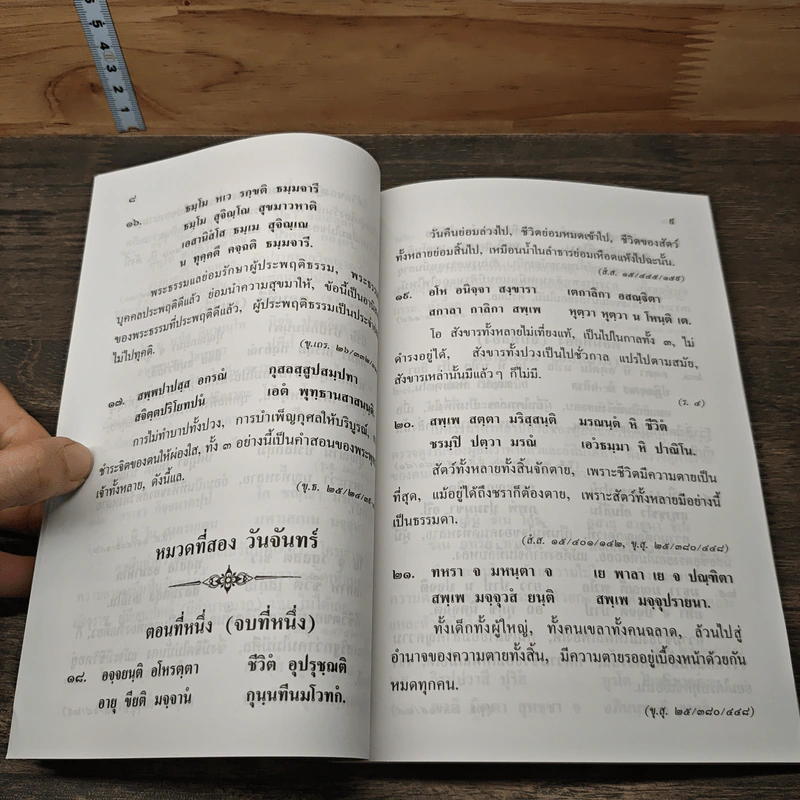 ๘
๑๖. ธมฺโม หเว รกฺขติ ธมฺมจารี
ธมฺโม สุจิณฺโณ สุขมาวหาติ
เอสานิสํโส ธมฺเม สุจิณฺเณ
น ทุคฺคตึ คจฺฉติ ธมฺมจารี.
พระธรรมแลย่อมรักษาผู้ประพฤติธรรม,
บุคคลประพฤติดีแล้ว ย่อมนำความสุขมาให้, ข้อนี้เป็น
ของพระธรรมที่ประพฤติดีแล้ว, ผู้ประพฤติธรรมเป็นประจำ
ไม่ไปทุคติ.
(ขุ.เถร. ๒๖/๓๓๒/
๑๗. สพฺพปาปสฺส อกรณํ กุสลสฺสูปสมฺปทา
สจิตฺตปริโยทปนํ เอตํ พุทฺธานสาสนนฺติ
การไม่ทำบาปทั้งปวง, การบำเพ็ญกุศลให้บริบูรณ์,
ชำระจิตของตนให้ผ่องใส, ทั้ง ๓ อย่างนี้เป็นคำสอนของพระพุทธ
เจ้าทั้งหลาย, ดังนี้แล.
(ขุ.ธ. ๒๕/๒๔/๓๙
หมวดที่สอง วันจันทร์
ตอนที่หนึ่ง (จบที่หนึ่ง)
๑๘. อจฺจยนฺติ อโหรตฺตา ชีวิตํ อุปรุชฺฌติ
อายุ ขียติ มจฺจานํ กุนฺนทีนมโวทกํ.
๙
วันคืนย่อมล่วงไป, ชีวิตย่อมหมดเข้าไป, ชีวิตของสัตว์
ทั้งหลายย่อมสิ้นไป, เหมือนน้ำในลำธารย่อมเหือดแห้งไปฉะนั้น.
(สํ.ส. ๑๕/๔๔๕/๑๕๙)
๑๙. อโห อนิจฺจา สงฺขารา เตกาลิกา อสณฺฐิตา
สกาลา กาลิกา สพฺเพ หุตฺวา หุตฺวา น โหนฺติ เต.
โอ สังขารทั้งหลายไม่เที่ยงแท้, เป็นไปในกาลทั้ง ๓, ไม่
ดำรงอยู่ได้, สังขารทั้งปวงเป็นไปชั่วกาล แปรไปตามสมัย,
สังขารเหล่านั้นมีแล้วๆ ก็ไม่มี.
(ร. ๔)
๒๐. สพฺเพ สตฺตา มริสฺสนฺติ มรณนฺติ หิ ชีวิตํ
ชรมฺปิ ปตฺวา มรณํ เอวํธมฺมา หิ ปาณิโน.
สัตว์ทั้งหลายทั้งสิ้นจักตาย, เพราะชีวิตมีความตายเป็น
ที่สุด, แม้อยู่ได้ถึงชราก็ต้องตาย, เพราะสัตว์ทั้งหลายมีอย่างนี้
เป็นธรรมดา.
(สํ.ส. ๑๕/๔๐๑/๑๔๒, ขุ.สุ. ๒๕/๓๘๐/๔๔๘)
๒๑. ทหรา จ มหนฺตา จ เย พาลา เย จ ปณฺฑิตา
สพฺเพ มจฺจุวสํ ยนฺติ สพฺเพ มจฺจุปรายนา.
ทั้งเด็กทั้งผู้ใหญ่, ทั้งคนเขลาทั้งคนฉลาด, ล้วนไปสู่
อำนาจของความตายทั้งสิ้น, มีความตายรออยู่เบื้องหน้าด้วยกัน
หมดทุกคน.
(ขุ.สุ. ๒๕/๓๘๐/๔๔๘)